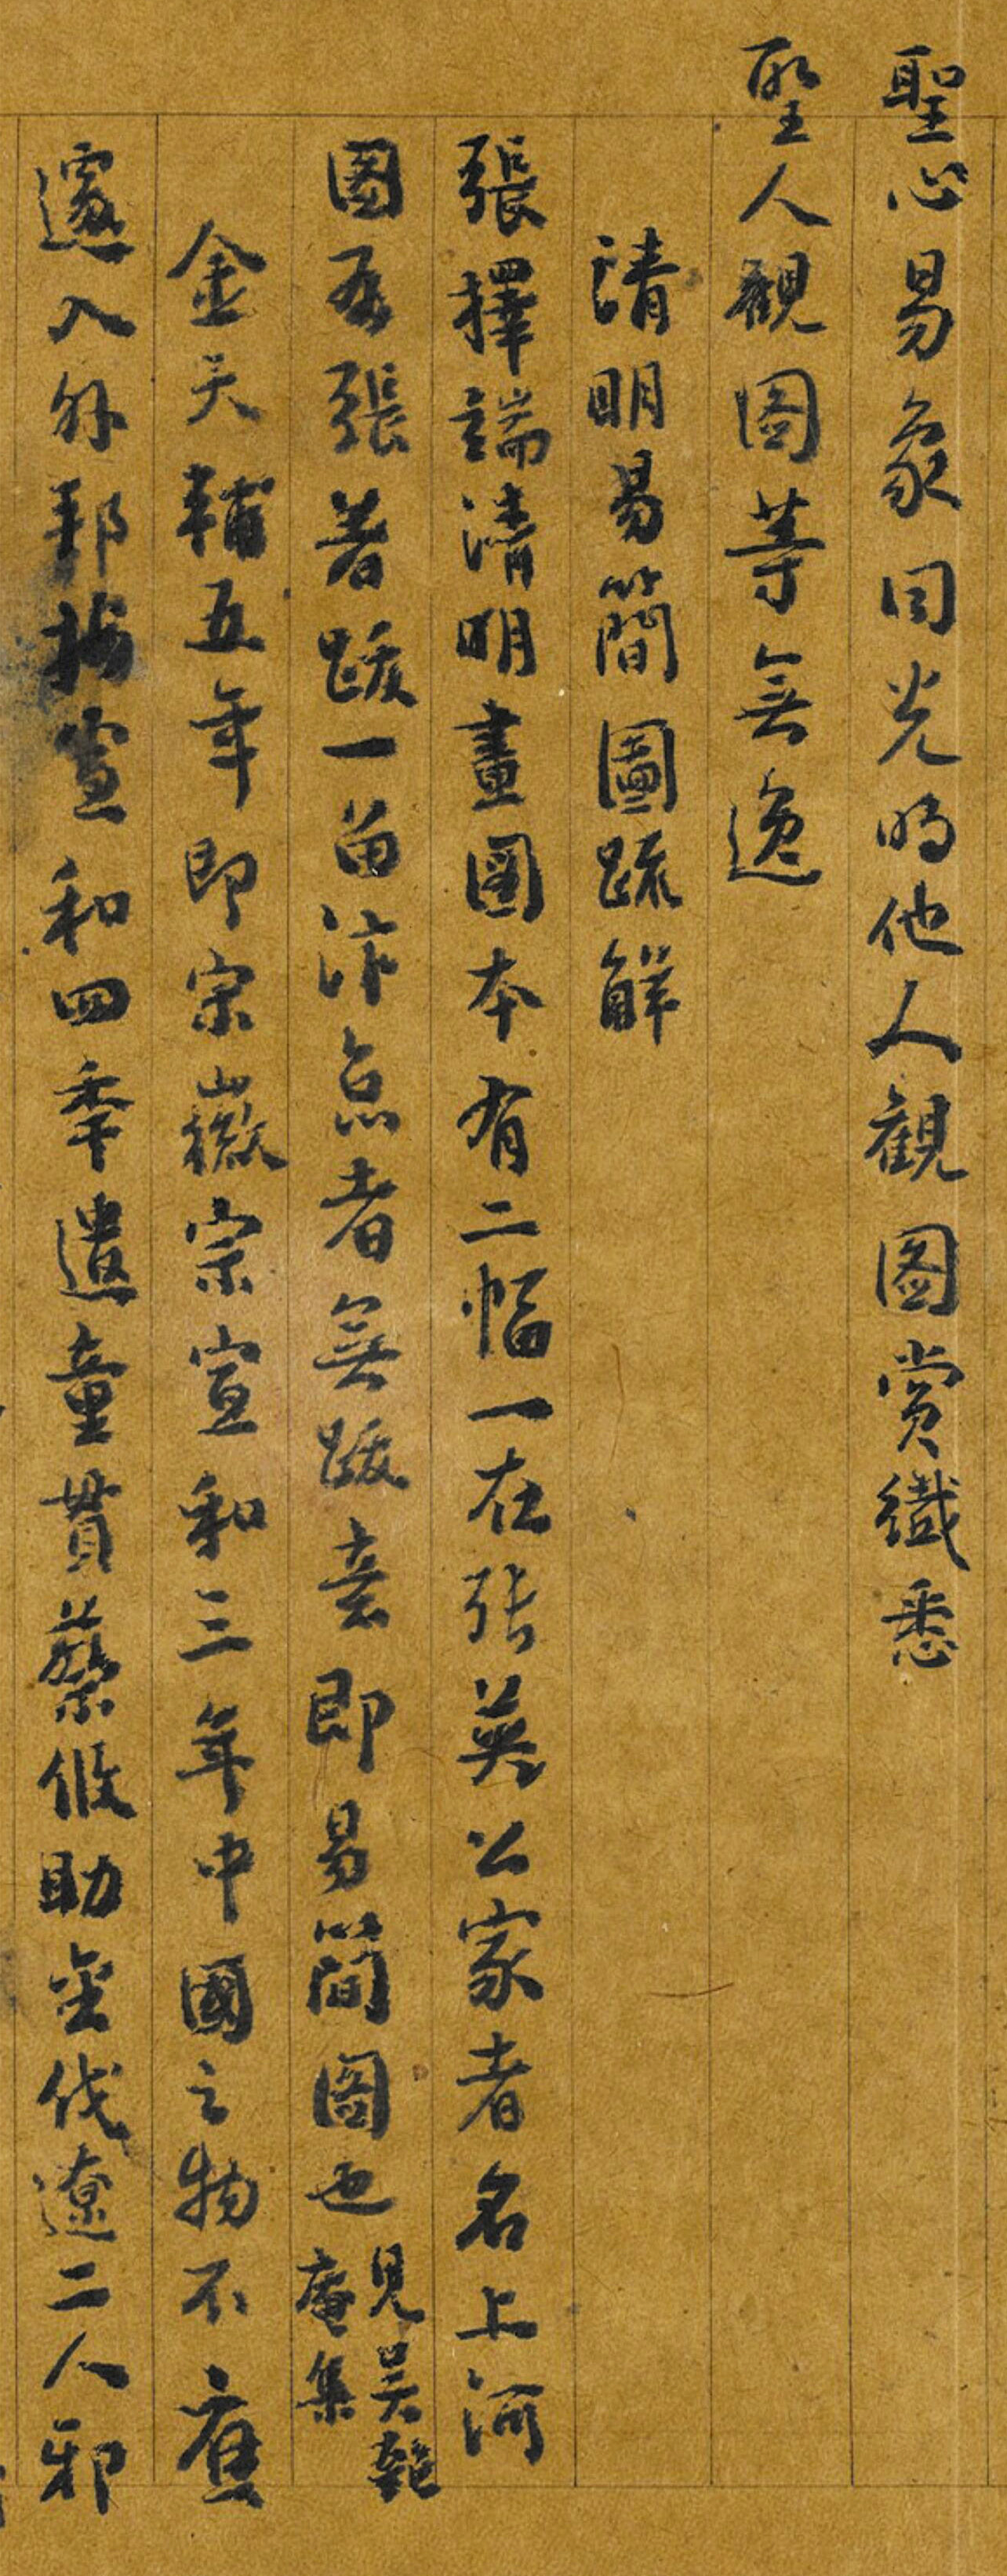 聖心易象同光明他人觀圖賞纖悉
聖人觀圖等無逸
清明易簡圖疏解
張擇端清明畫圖本有二幅一在張英公家者名上河
圖有張著跋一留汴京者無跋者即易簡圖也見吳匏庵集
金天輔五年即宋徽宗宣和三年中國之物不應
遽入外邦按宣和四季遣童貫蔡攸助金伐遼二人邪